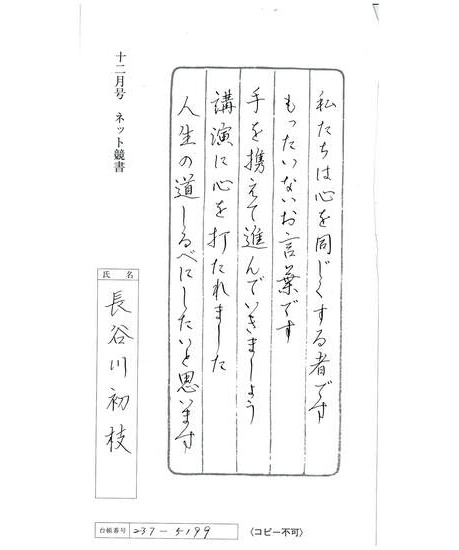 私たちは心を同じくする者です
もったいないお言葉です
手を携えて進んでいきましょう
講演に心を打たれました
人生の道しるべにしたいと思います
十二月号 ネット競書
氏名
長谷川初枝
台帳番号 237-5199
〈コピー不可〉